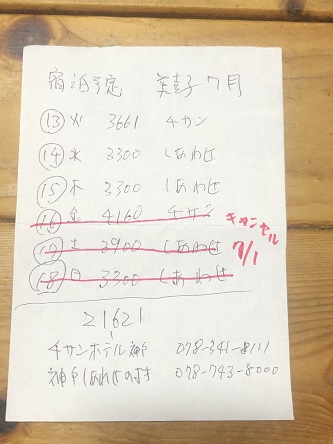 宿泊予定 美喜子 7月
⑬ 火 3661 チサン
⑭ 水 3300 しあわせ
⑮ 木 3300 しあわせ
⑯ 金 4160 チサン
⑰ 土 3900 しあわせ
⑱ 日 3300 しあわせ
キャンセル
7/1
21621
チサンホテル神戸 078-341-8111
神戸しあわせの村 078-743-8000